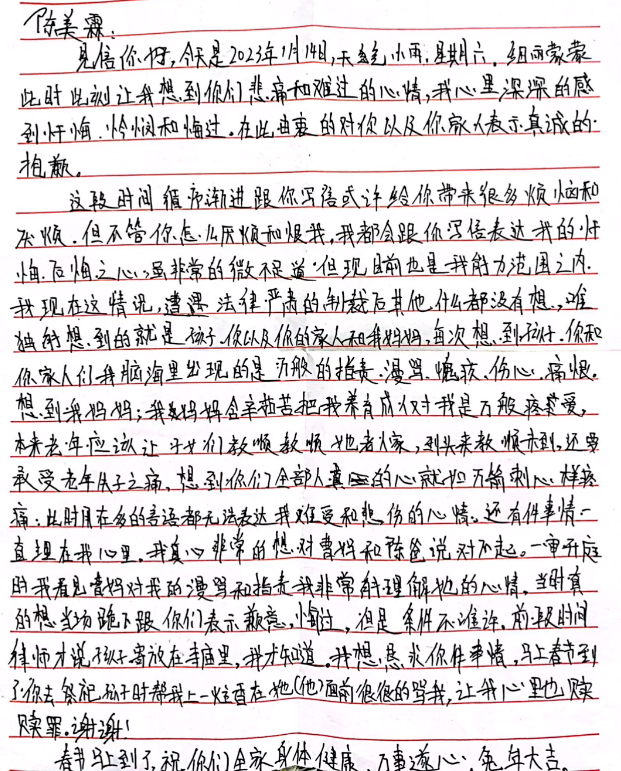 陈美霖:
见信你好,今天是2023年1月14日,天气小雨,星期六。细雨蒙蒙
此时此刻让我想到你们悲痛和难过的心情,我心里深深的感
到忏悔、怜悯和悔过。在此由衷的对你以及你家人表示真诚的
抱歉。
这段时间循序渐进跟你写信或许给你带来很多烦恼和
厌烦。但不管你怎么厌烦和恨我,我都会跟你写信表达我的忏
悔。后悔之心,虽非常的微不足道,但现目前也是我能力范围之内.
我现在这情况,遭遇法律严肃的制裁后其他什么都没有想,唯
独的想到的就是孩子、你以及你的家人和我妈妈,每次想到孩子、你和
你家人们我脑海里出现的是万般的指责、漫骂、伤心、痛恨。
想到我妈妈;我妈妈含辛茹苦把我养育成人对于我是万般疼爱,
本来老年应该让子女们孝顺孝顺她老人家,到头来孝顺未到,还要
承受老年失子之痛。想到你们全部人真的心就如万箭刺心样疼
痛;此时用在多的言语都无法表达我难受和悲伤的心情。还有件事情一
直埋在我心里,我真心非常的想对曹妈和陈爸说对不起。一审开庭
时我看见曹妈对我的漫骂和指责我非常能理解她的心情,当时真
的想当场跪下跟你们表示歉意,悔过,但是条件不准许。前段时间
律师才说孩子寄放在寺庙里,我才知道。我想恳求你件事情,马上春节到
了你去祭祀孩子时帮我上一炷香在她(他)面前很很的骂我,让我心里也赎
赎罪。谢谢!
春节马上到了,祝你们全家身体健康、万事遂心、兔年大吉。